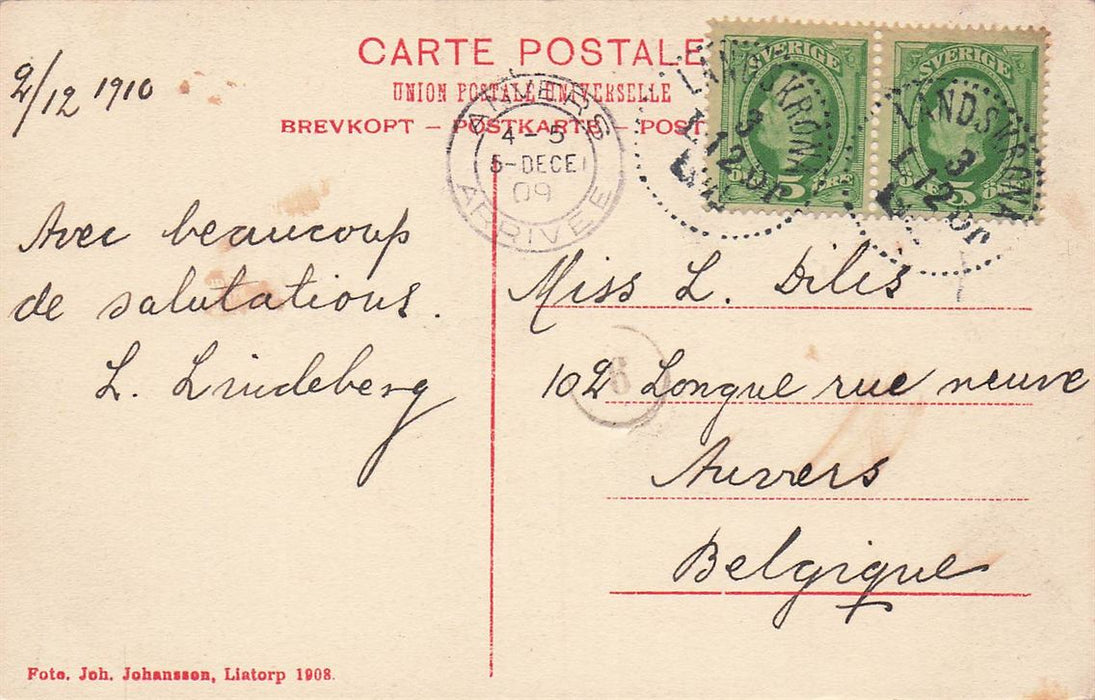 CARTE POSTALE
UNION POSTALE UNIVERSELLE
BREVKOPT – POSTKARTE – POST
2/12 1910
Avec beaucoup
de salutations.
L. Lindeberg
ANVERS
4 – 5
5-DECE
09
ARRIVEE
SVERIGE
5 ÖRE
SVERIGE
ÖRE 5 ÖRE
LANDSKRONA
3
12
LANDSKRONA
3
12
Miss L. Dilis
6
102 Longue rue neuve
Anvers
Belgique
Foto. Joh. Johansson, Liatorp 1908.